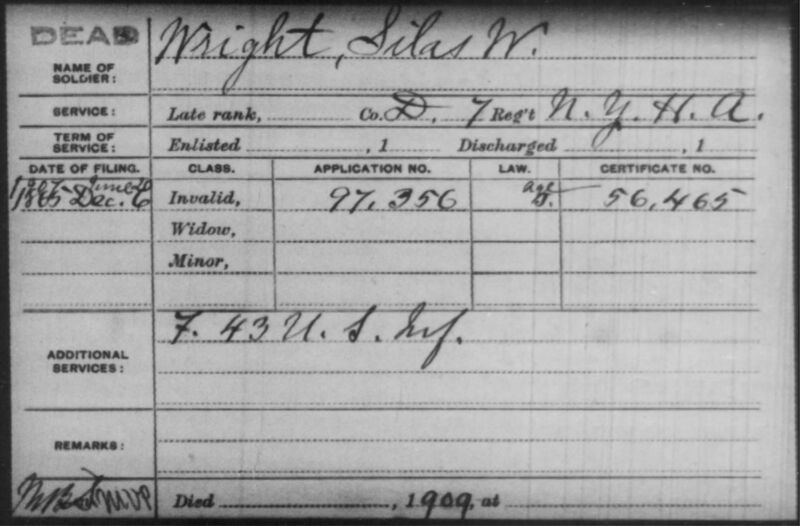 DEAD
Wright, Silas W.
NAME OF
SOLDIER:
SERVICE: Late rank, Co. D, 7 Reg't N. Y. H. A.
TERM OF
SERVICE: Enlisted , 1 Discharged , 1
DATE OF FILING. CLASS. APPLICATION NO. LAW. CERTIFICATE NO.
1907 June age
1865 Dec. 6 Invalid, 97,356 56,465
Widow,
Minor,
F. 43 U. S. Inf.
ADDITIONAL
SERVICES:
REMARKS:
MVP Died , 1909, at